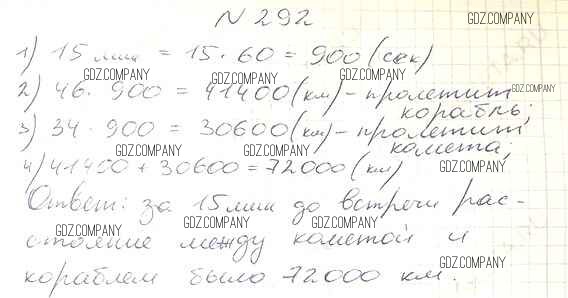 N 292
GDZ.COMPANY
1) 15 мин = 15 · 60 = 900 (сек)
GDZ.COMPANY GDZ.COMPANY GDZ.COMPANY
2) 46 · 900 = 41400 (км) - пролетит GDZ.COMPANY
корабль;
GDZ.COMPANY
3) 34 · 900 = 30600 (км) - пролетит
комета;
GDZ.COMPANY GDZ.COMPANY GDZ.COMPANY
4) 41400 + 30600 = 72000 (км) GDZ.COMPANY
Ответ: за 15 мин до встречи рас-
GDZ.COMPANY GDZ.COMPANY
стояние между кометой и
GDZ.COMPANY
кораблем было 72000 км.
GDZ.COMPANY